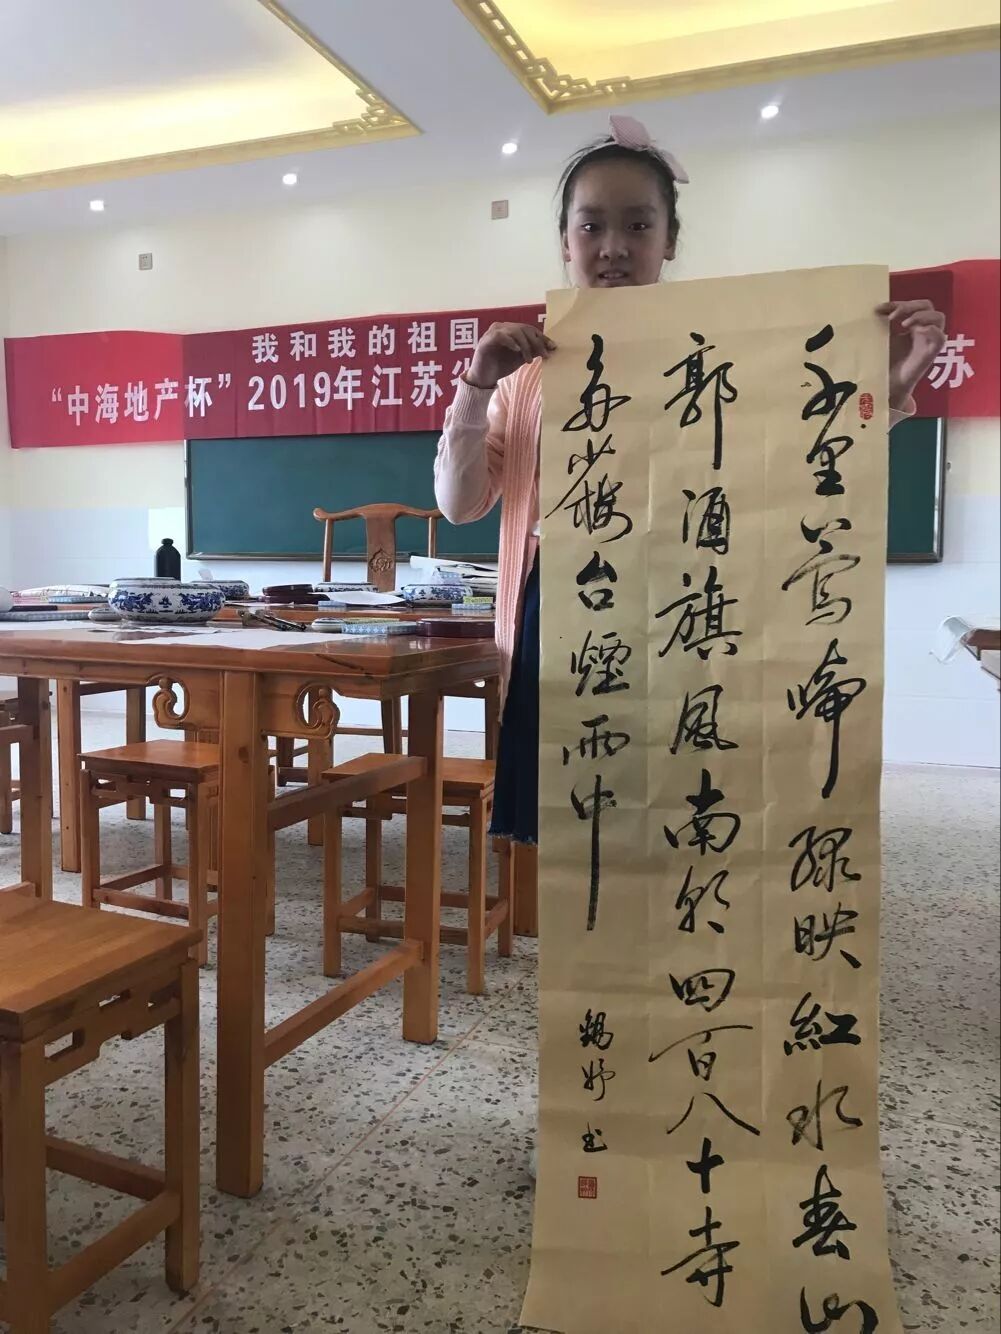 我和我的祖国
“中海地产杯”2019年江苏
苏
千里莺啼綠映紅水春山
郭酒旗風南朝四百八十寺
多少楼台煙雨中
妤书